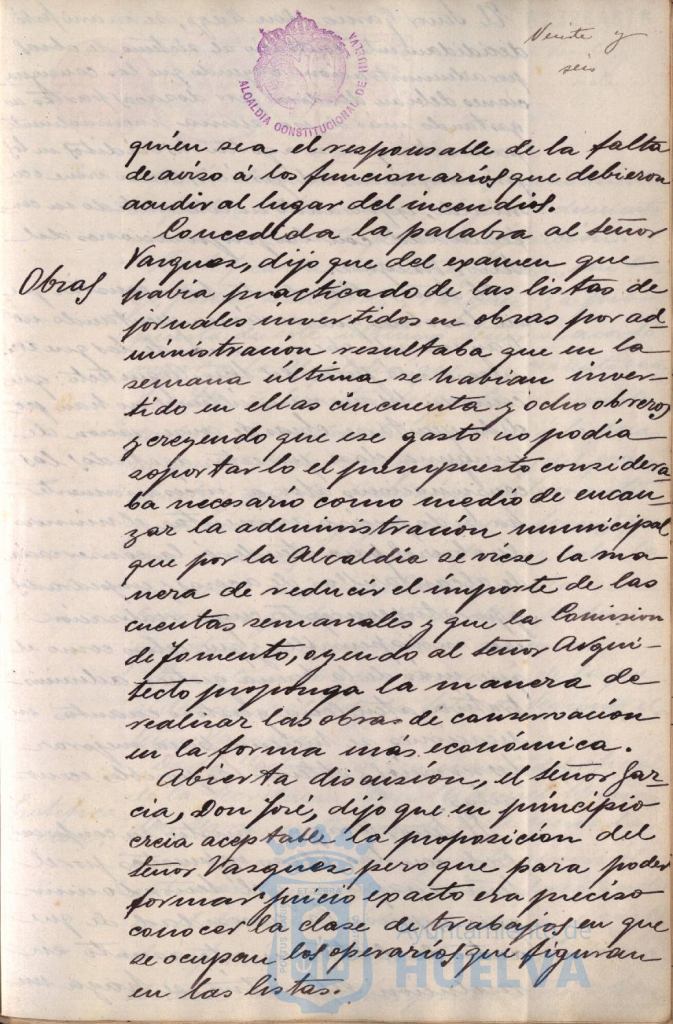 Veinte y
seis
ALCALDIA CONSTITUCIONAL DE HUELVA
quién sea el responsable de la falta
de aviso á los funcionarios que debieron
acudir al lugar del incendios.
Concedida la palabra al Señor
Obras
Vazquez, dijo que del examen que
habia practicado de las listas de
jornales invertidos en obras por ad-
ministración resultaba que en la
semana última se habian inver-
tido en ellas cincuenta y ocho obreros
y creyendo que ese gasto no podía
soportarlo el presupuesto considera-
ba necesario como medio de encau-
zar la administración municipal
que por la Alcaldía se viese la ma-
nera de reducir el importe de las
cuentas semanales y que la Comision
de Fomento, oyendo al Señor Arqui-
tecto proponga la manera de
realizar las obras de conservación
en la forma más económica.
Abierta discusión, el Señor Gar-
cia, Don José, dijo que en principio
creia aceptable la proposición del
Señor Vasquez pero que para poder
formar juicio exacto era preciso
conocer la clase de trabajos en que
se ocupan los operarios que figuran
en las listas.
Ayuntamiento de
HUELVA